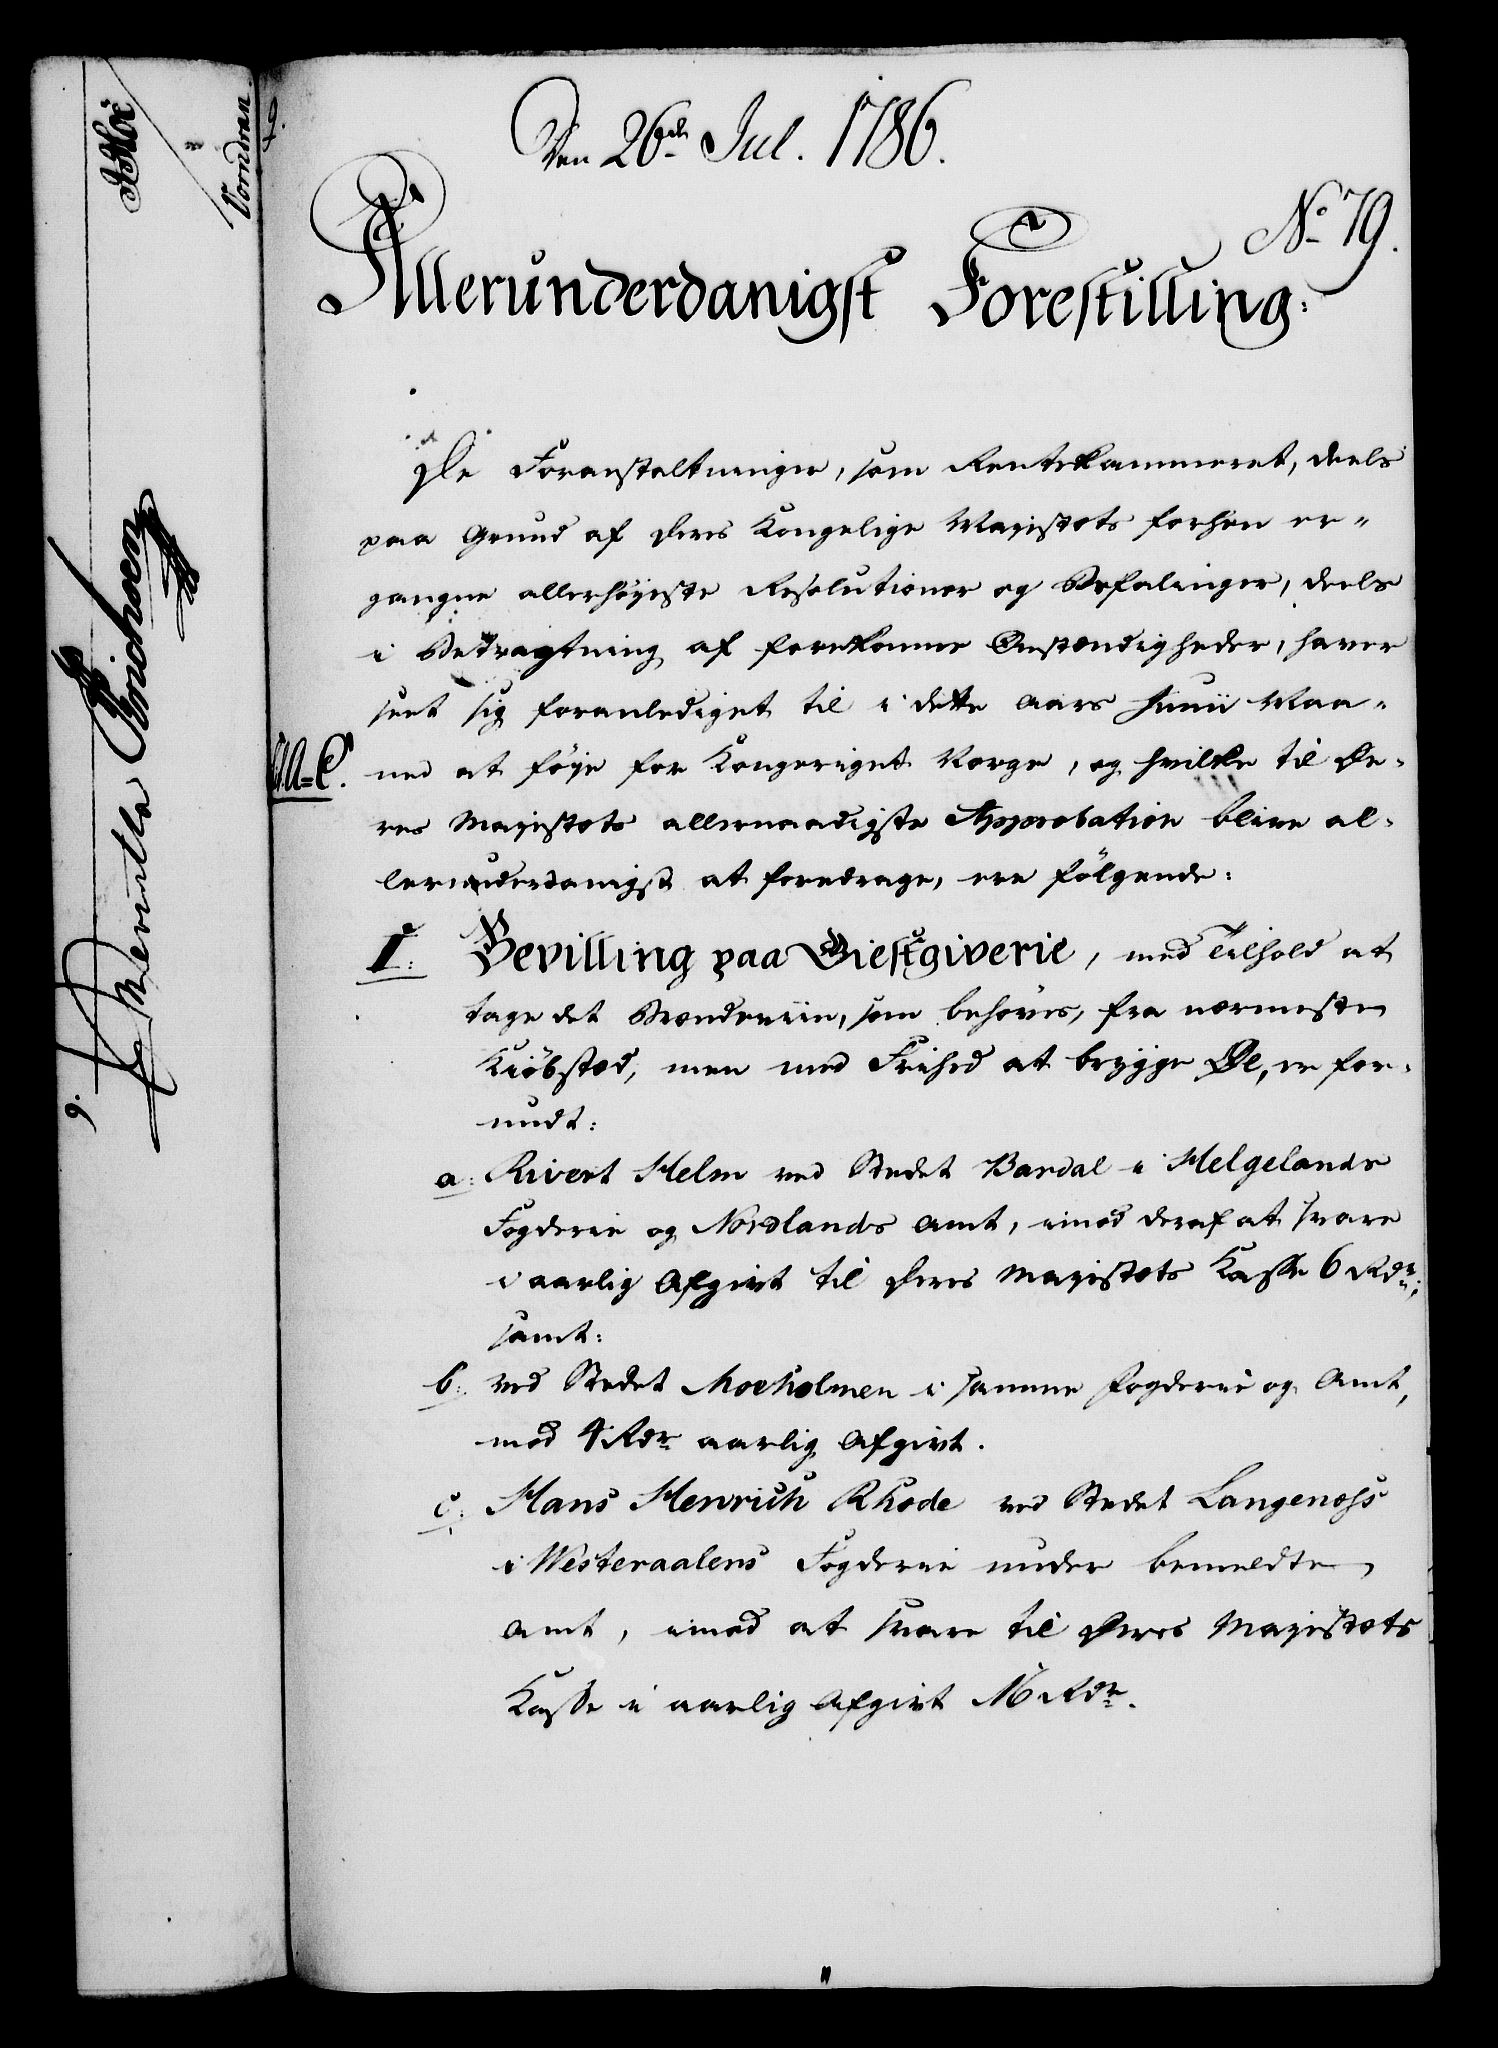 Den 26de Jul. 1786.
No 79.
Allerunderdanigst Forestilling:
De Foranstaltninger, som Rentekammeret, deels
paa Grund af Deres Kongelige Mayestæts forhen er-
gangne allerhøyeste Resolutioner og Befalinger, deels
i Betragtning af forekomne Omstændigheder, haver
seet sig foranlediget til i dette Aars Junii Maa-
ned at føye for Kongeriget Norge, og hvilke til De-
res Mayestæts allernaadigste Approbation blive al-
lerunderdanigst at foredrage, ere følgende:
I: Bevilling paa Giestgiverie, med Tilhold at
tage det Brændeviin, som behøves, fra nærmeste
Kiøbstæd, men med Frihed at brygge Øl, er for-
undt:
a: Rivert Helm ved Stedet Bardal i Helgelands
Fogderie og Nordlands Amt, imod deraf at svare
i aarlig Afgivt til Deres Mayestæts Kasse 6 Rdr;
samt:
b: ved Stedet Moeholmen i samme Fogderie og Amt,
mod 4 Rdr aarlig Afgivt.
c: Hans Henrich Rhode ved Stedet Langenæss
i Westeraalens Fogderie under bemeldte
Amt, imod at svare til Deres Mayestæts
Kasse i aarlig Afgivt 16 Rdr.
Erichsen
Vorndran
9.